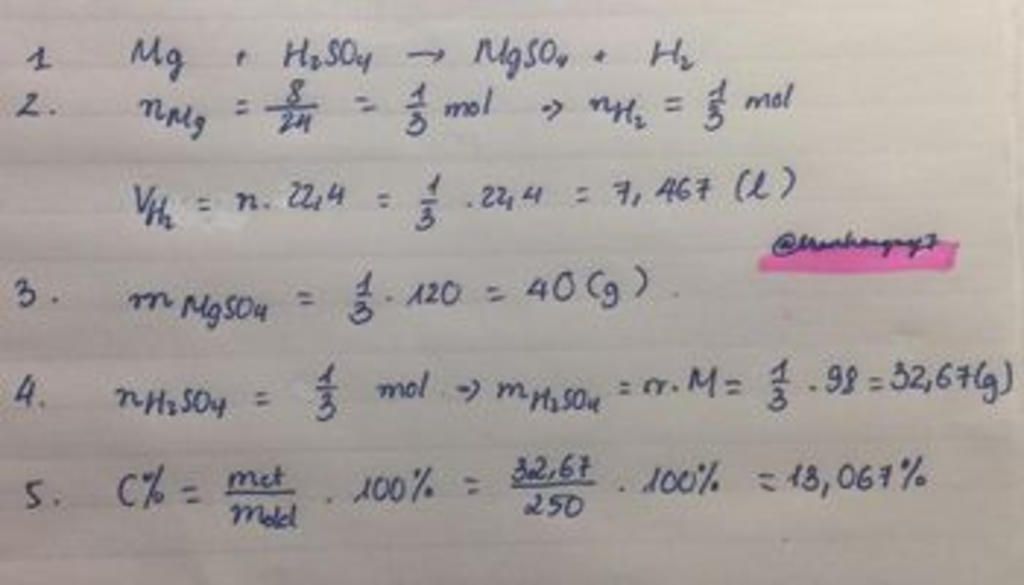 1 Mg + H₂SO₄ → MgSO₄ + H₂
2. nMg = 8/24 = 1/3 mol => nH₂ = 1/3 mol
VH₂ = n. 22,4 = 1/3 . 22,4 = 7,467 (l)
3. mMgSO₄ = 1/3 . 120 = 40 (g).
4. nH₂SO₄ = 1/3 mol => mH₂SO₄ = n.M = 1/3 . 98 = 32,67(g)
5. C% = mct/mdd . 100% = 32,67/250 . 100% = 13,067%